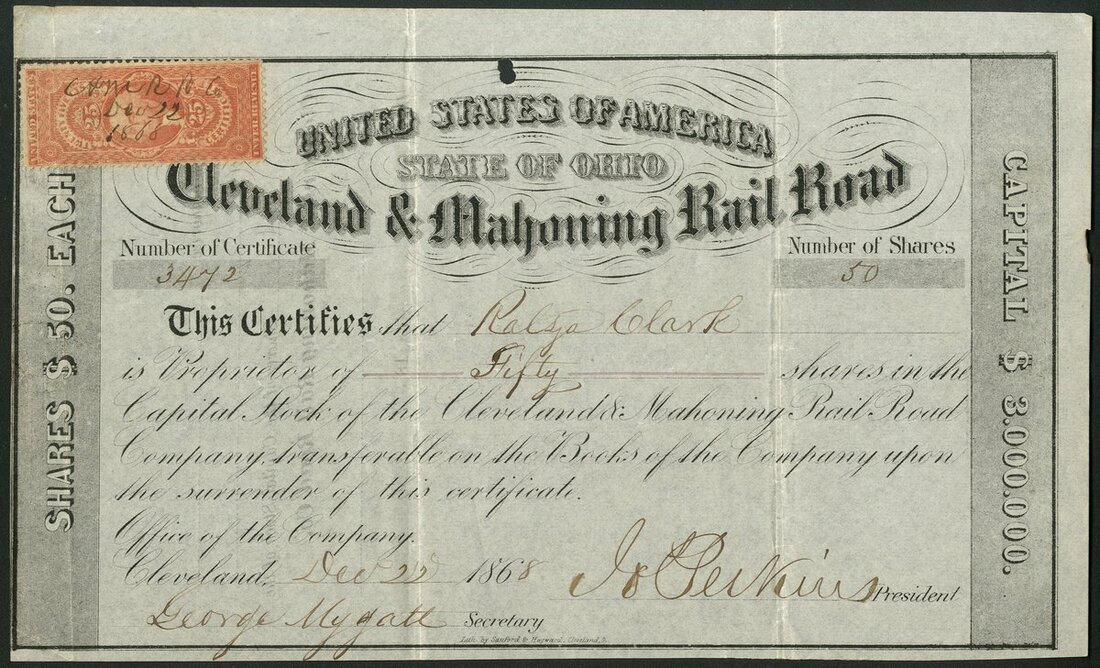 C & M R R Co
Dec 22
1868
25 25
UNITED STATES OF AMERICA
STATE OF OHIO
Cleveland & Mahoning Rail Road
Number of Certificate
3472
Number of Shares
50
SHARES $ 50. EACH
CAPITAL $ 3.000.000.
This Certifies that Clark
is Proprietor of Fifty shares in the
Capital Stock of the Cleveland & Mahoning Rail Road
Company, transferable on the Books of the Company upon
the surrender of this certificate.
Office of the Company.
Cleveland, Dec 22 1868
Jo Perkins President
George Mygatt Secretary
Lith. by Sanford & Hayward, Cleveland, O.